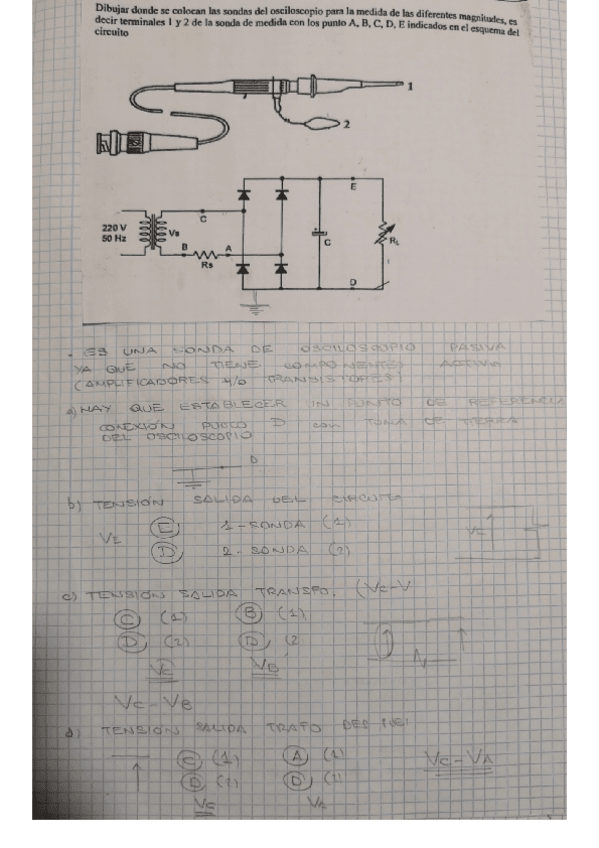 Dibujar donde se colocan las sondas del osciloscopio para la medida de las diferentes magnitudes, es
decir terminales 1 y 2 de la sonda de medida con los punto A, B, C, D, E indicados en el esquema del
circuito
1
2
E
C
220 V
50 Hz
Vs
B
A
Rs
C
RL
D
. ES UNA SONDA DE OSCILOSCOPIO PASIVA
YA QUE NO TIENE COMPONENTES ACTIVOS
(AMPLIFICADORES Y/O TRANSISTORES)
a) HAY QUE ESTABLECER UN PUNTO DE REFERENCIA
CONEXIÓN PUNTO D con TOMA DE TIERRA
DEL OSCILOSCOPIO
D
b) TENSIÓN SALIDA DEL CIRCUITO
VE
E 1-SONDA (1)
D 2. SONDA (2)
VE
c) TENSIÓN SALIDA TRANSFO. (Vc-V
C (1) B (1)
D (2) D (2
Vc VB
Vc - VB
d) TENSIÓN SALIDA TRAFO
C (1) A (1)
D (2) D (2)
Vc - VA
Vc VA